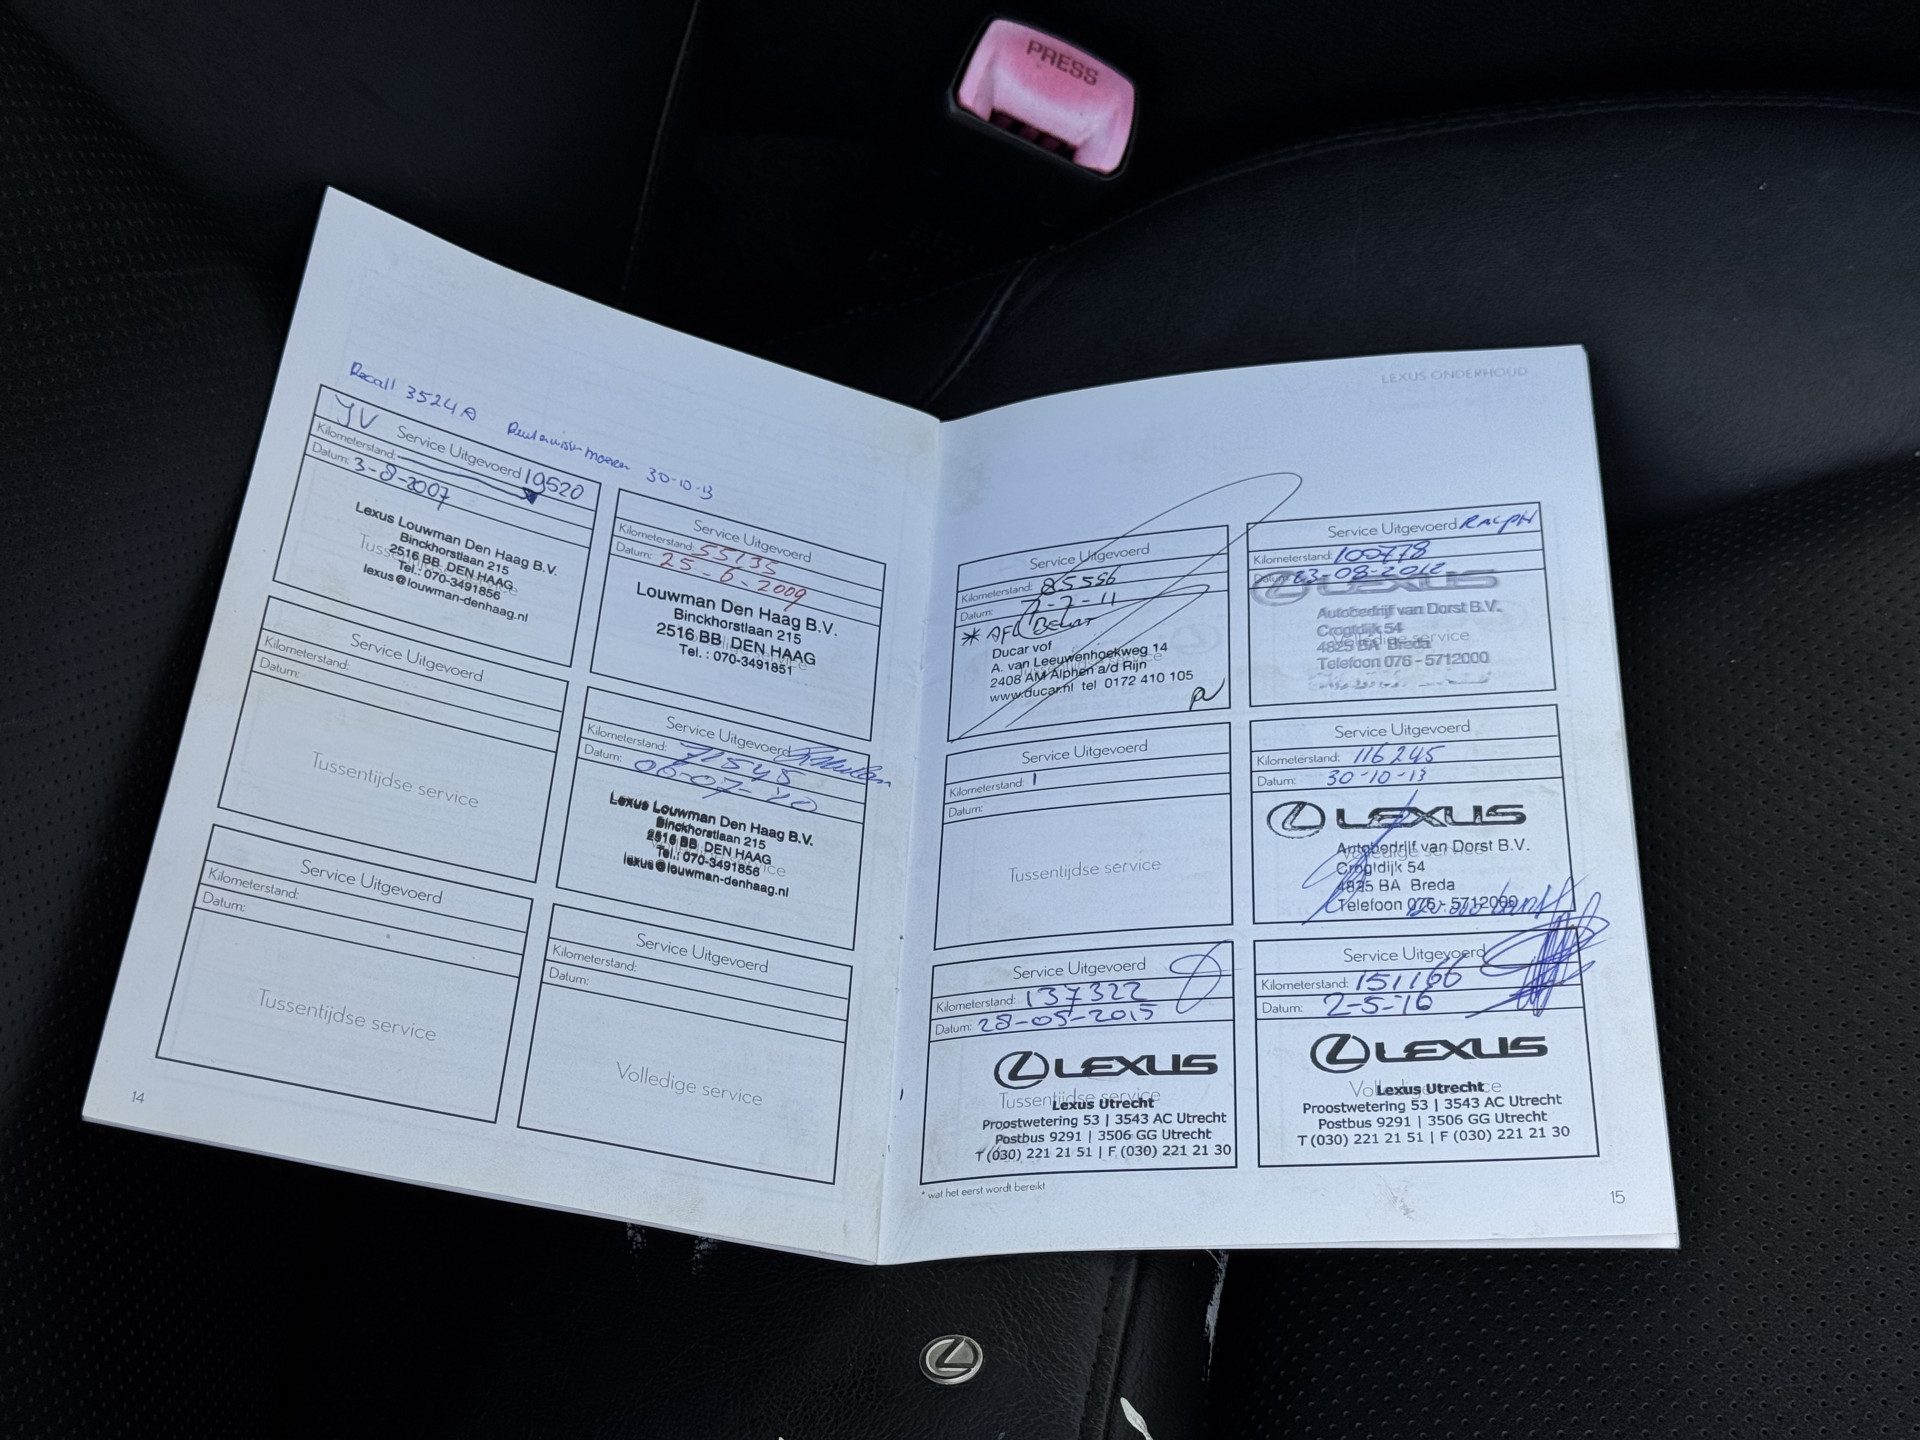 PRESS
Recall 3524A 30-10-13
JV
Service Uitgevoerd
Kilometerstand: 19520
Datum: 3-8-2007
Lexus Louwman Den Haag B.V.
Binckhorstlaan 215
2516 BB DEN HAAG
Tel.: 070-3491856
lexus@louwman-denhaag.nl
Service Uitgevoerd
Kilometerstand:
Datum:
Tussentijdse service
Service Uitgevoerd
Kilometerstand:
Datum:
Tussentijdse service
14
Service Uitgevoerd
Kilometerstand: 55135
Datum: 25-6-2009
Louwman Den Haag B.V.
Binckhorstlaan 215
2516 BB DEN HAAG
Tel. : 070-3491851
Service Uitgevoerd
Kilometerstand: 71545
Datum: 06-07-10
Lexus Louwman Den Haag B.V.
Binckhorstlaan 215
2516 BB DEN HAAG
Tel.: 070-3491856
lexus@louwman-denhaag.nl
Service Uitgevoerd
Kilometerstand:
Datum:
Volledige service
LEXUS ONDERHOUD
Service Uitgevoerd
Kilometerstand: 85556
Datum: 7-7-11
Ducar vof
A. van Leeuwenhoekweg 14
2408 AM Alphen a/d Rijn
www.ducar.nl tel 0172 410 105
Service Uitgevoerd
Kilometerstand:
Datum:
Tussentijdse service
Service Uitgevoerd
Kilometerstand: 137322
Datum: 28-05-2015
LEXUS
Tussentijdse service
Lexus Utrecht
Proostwetering 53 | 3543 AC Utrecht
Postbus 9291 | 3506 GG Utrecht
T (030) 221 21 51 | F (030) 221 21 30
* wat het eerst wordt bereikt
Service Uitgevoerd RALPH
Kilometerstand: 100478
Datum: 23-08-2012
LEXUS
Autobedrijf van Dorst B.V.
Crogtdijk 54
Volledige service
4825 BA Breda
Telefoon 076 - 5712000
Service Uitgevoerd
Kilometerstand: 116245
Datum: 30-10-13
LEXUS
Autobedrijf van Dorst B.V.
Volledige service
Crogtdijk 54
4825 BA Breda
Telefoon 076 - 5712000
Service Uitgevoerd
Kilometerstand: 151166
Datum: 2-5-16
LEXUS
Volledige service
Lexus Utrecht
Proostwetering 53 | 3543 AC Utrecht
Postbus 9291 | 3506 GG Utrecht
T (030) 221 21 51 | F (030) 221 21 30
15